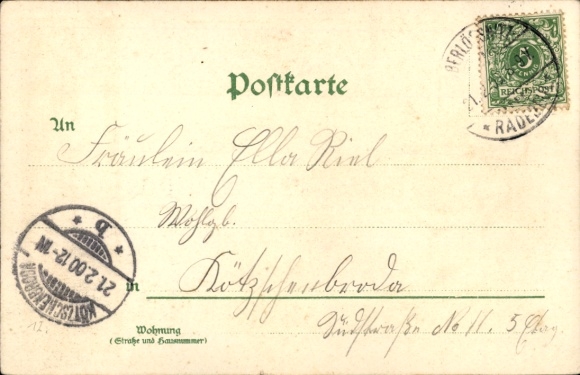 BERLÖSSNITZ
21.2.
* RADEB
5
REICHSPOST
Postkarte
An
Fräulein Ella Riel
Wohlgb.
in Kötzschenbroda
Südstraße No 11. 5 Etag.
Wohnung
(Straße und Hausnummer)
* b *
21.2.00.12-1N
KÖTZSCHENBRODA
12.